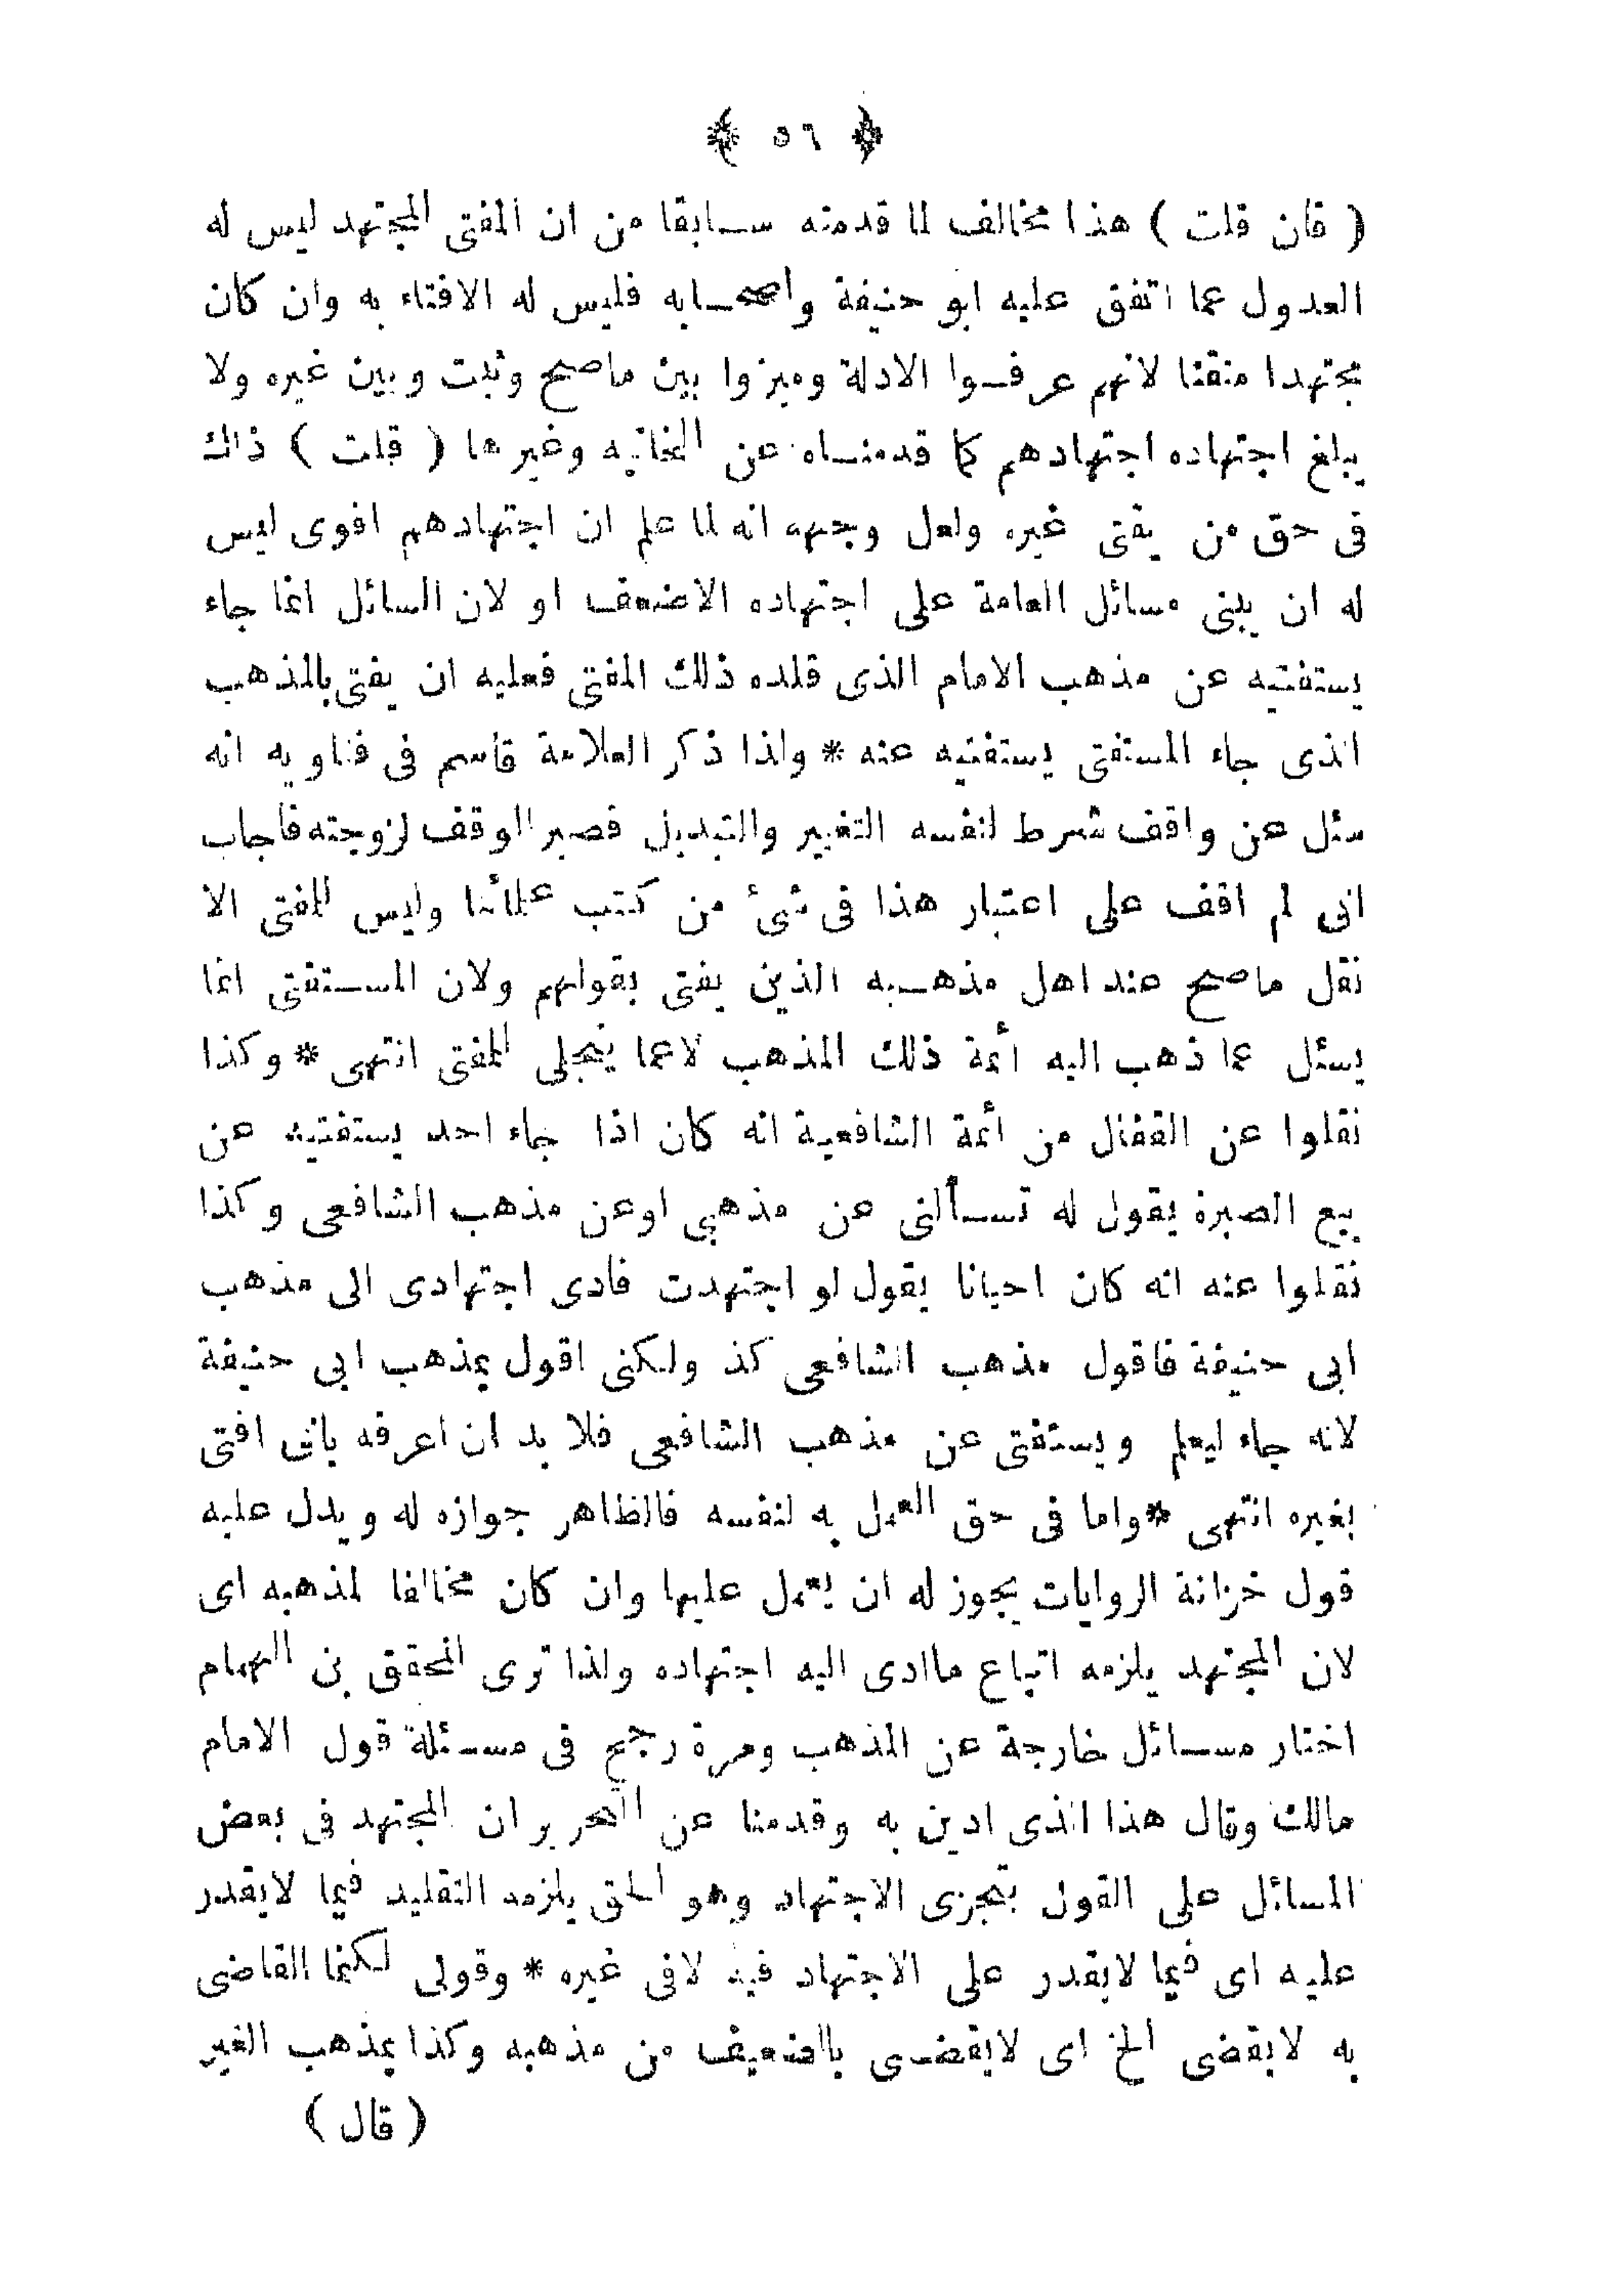 ﴿ ٥٦ ﴾
( فان قلت ) هذا مخالف لما قدمته سابقا من ان المفتى المجتهد ليس له
العدول عما اتفق عليه ابو حنيفة واصحابه فليس له الافتاء به وان كان
مجتهدا متقنا لانهم عرفوا الادلة وميزوا بين ماصح وثبت وبين غيره ولا
يبلغ اجتهاده اجتهادهم كما قدمناه عن الخانيه وغيرها ( قلت ) ذاك
فى حق من يفتى غيره ولعل وجهه انه لما علم ان اجتهادهم اقوى ليس
له ان يبنى مسائل العامة على اجتهاده الاضعف او لان السائل انما جاء
يستفتيه عن مذهب الامام الذى قلده ذلك المفتى فعليه ان يفتى بالمذهب
الذى جاء المستفتى يستفتيه عنه * ولذا ذكر العلامة قاسم فى فتاويه انه
سئل عن واقف شرط لنفسه التغيير والتبديل فصير الوقف لزوجته فاجاب
انى لم اقف على اعتبار هذا فى شئ من كتب علمائنا وليس للمفتى الا
نقل ماصح عند اهل مذهبه الذين يفتى بقولهم ولان المستفتى انما
يسئل عما ذهب اليه أئمة ذلك المذهب لاعما ينجلى للمفتى انتهى * وكذا
نقلوا عن القفال من أئمة الشافعية انه كان اذا جاء احد يستفتيه عن
بيع الصبرة يقول له تسألنى عن مذهبى اوعن مذهب الشافعى وكذا
نقلوا عنه انه كان احيانا يقول لو اجتهدت فادى اجتهادى الى مذهب
ابى حنيفة فاقول مذهب الشافعى كذ ولكنى اقول بمذهب ابى حنيفة
لانه جاء ليعلم ويستفتى عن مذهب الشافعى فلا بد ان اعرفه بانى افتى
بغيره انتهى * واما فى حق العمل به لنفسه فالظاهر جوازه له ويدل عليه
قول خزانة الروايات يجوز له ان يعمل عليها وان كان مخالفا لمذهبه اى
لان المجتهد يلزمه اتباع ماادى اليه اجتهاده ولذا ترى المحقق بن الهمام
اختار مسائل خارجة عن المذهب ومرة رجح فى مسئلة قول الامام
مالك وقال هذا الذى ادين به وقدمنا عن التحرير ان المجتهد فى بعض
المسائل على القول بتجزى الاجتهاد وهو الحق يلزمه التقليد فيما لايقدر
عليه اى فيما لايقدر على الاجتهاد فيه لافى غيره * وقولى لكنما القاضى
به لايقضى الخ اى لايقضى بالضعيف من مذهبه وكذا بمذهب الغير
( قال )